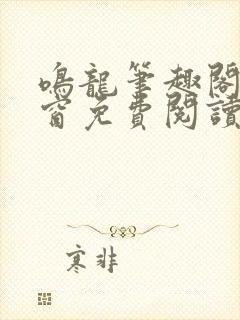 鳴龍筆趣閣
窗免費閱讀
寒非